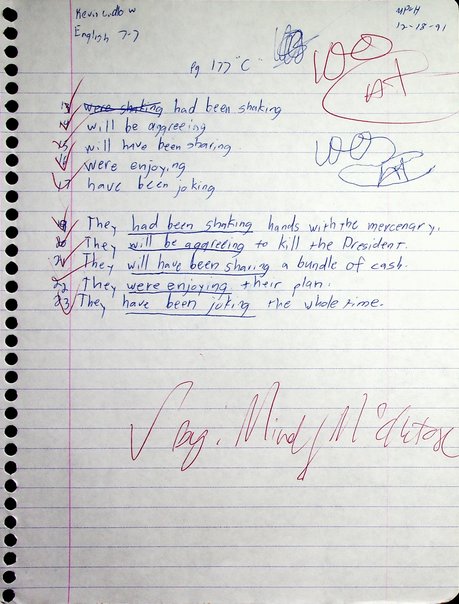 Kevin Ludlow
MPCH
English 7-7
12-18-91
pg 177 "C"
100
A+
were shaking had been shaking
will be aggreeing
25 will have been sharing
were enjoying
have been joking
100
A+
19 They had been shaking hands with the mercenary.
20 They will be aggreeing to kill the President.
21 They will have been sharing a bundle of cash.
22 They were enjoying their plan.
23 They have been joking the whole time.